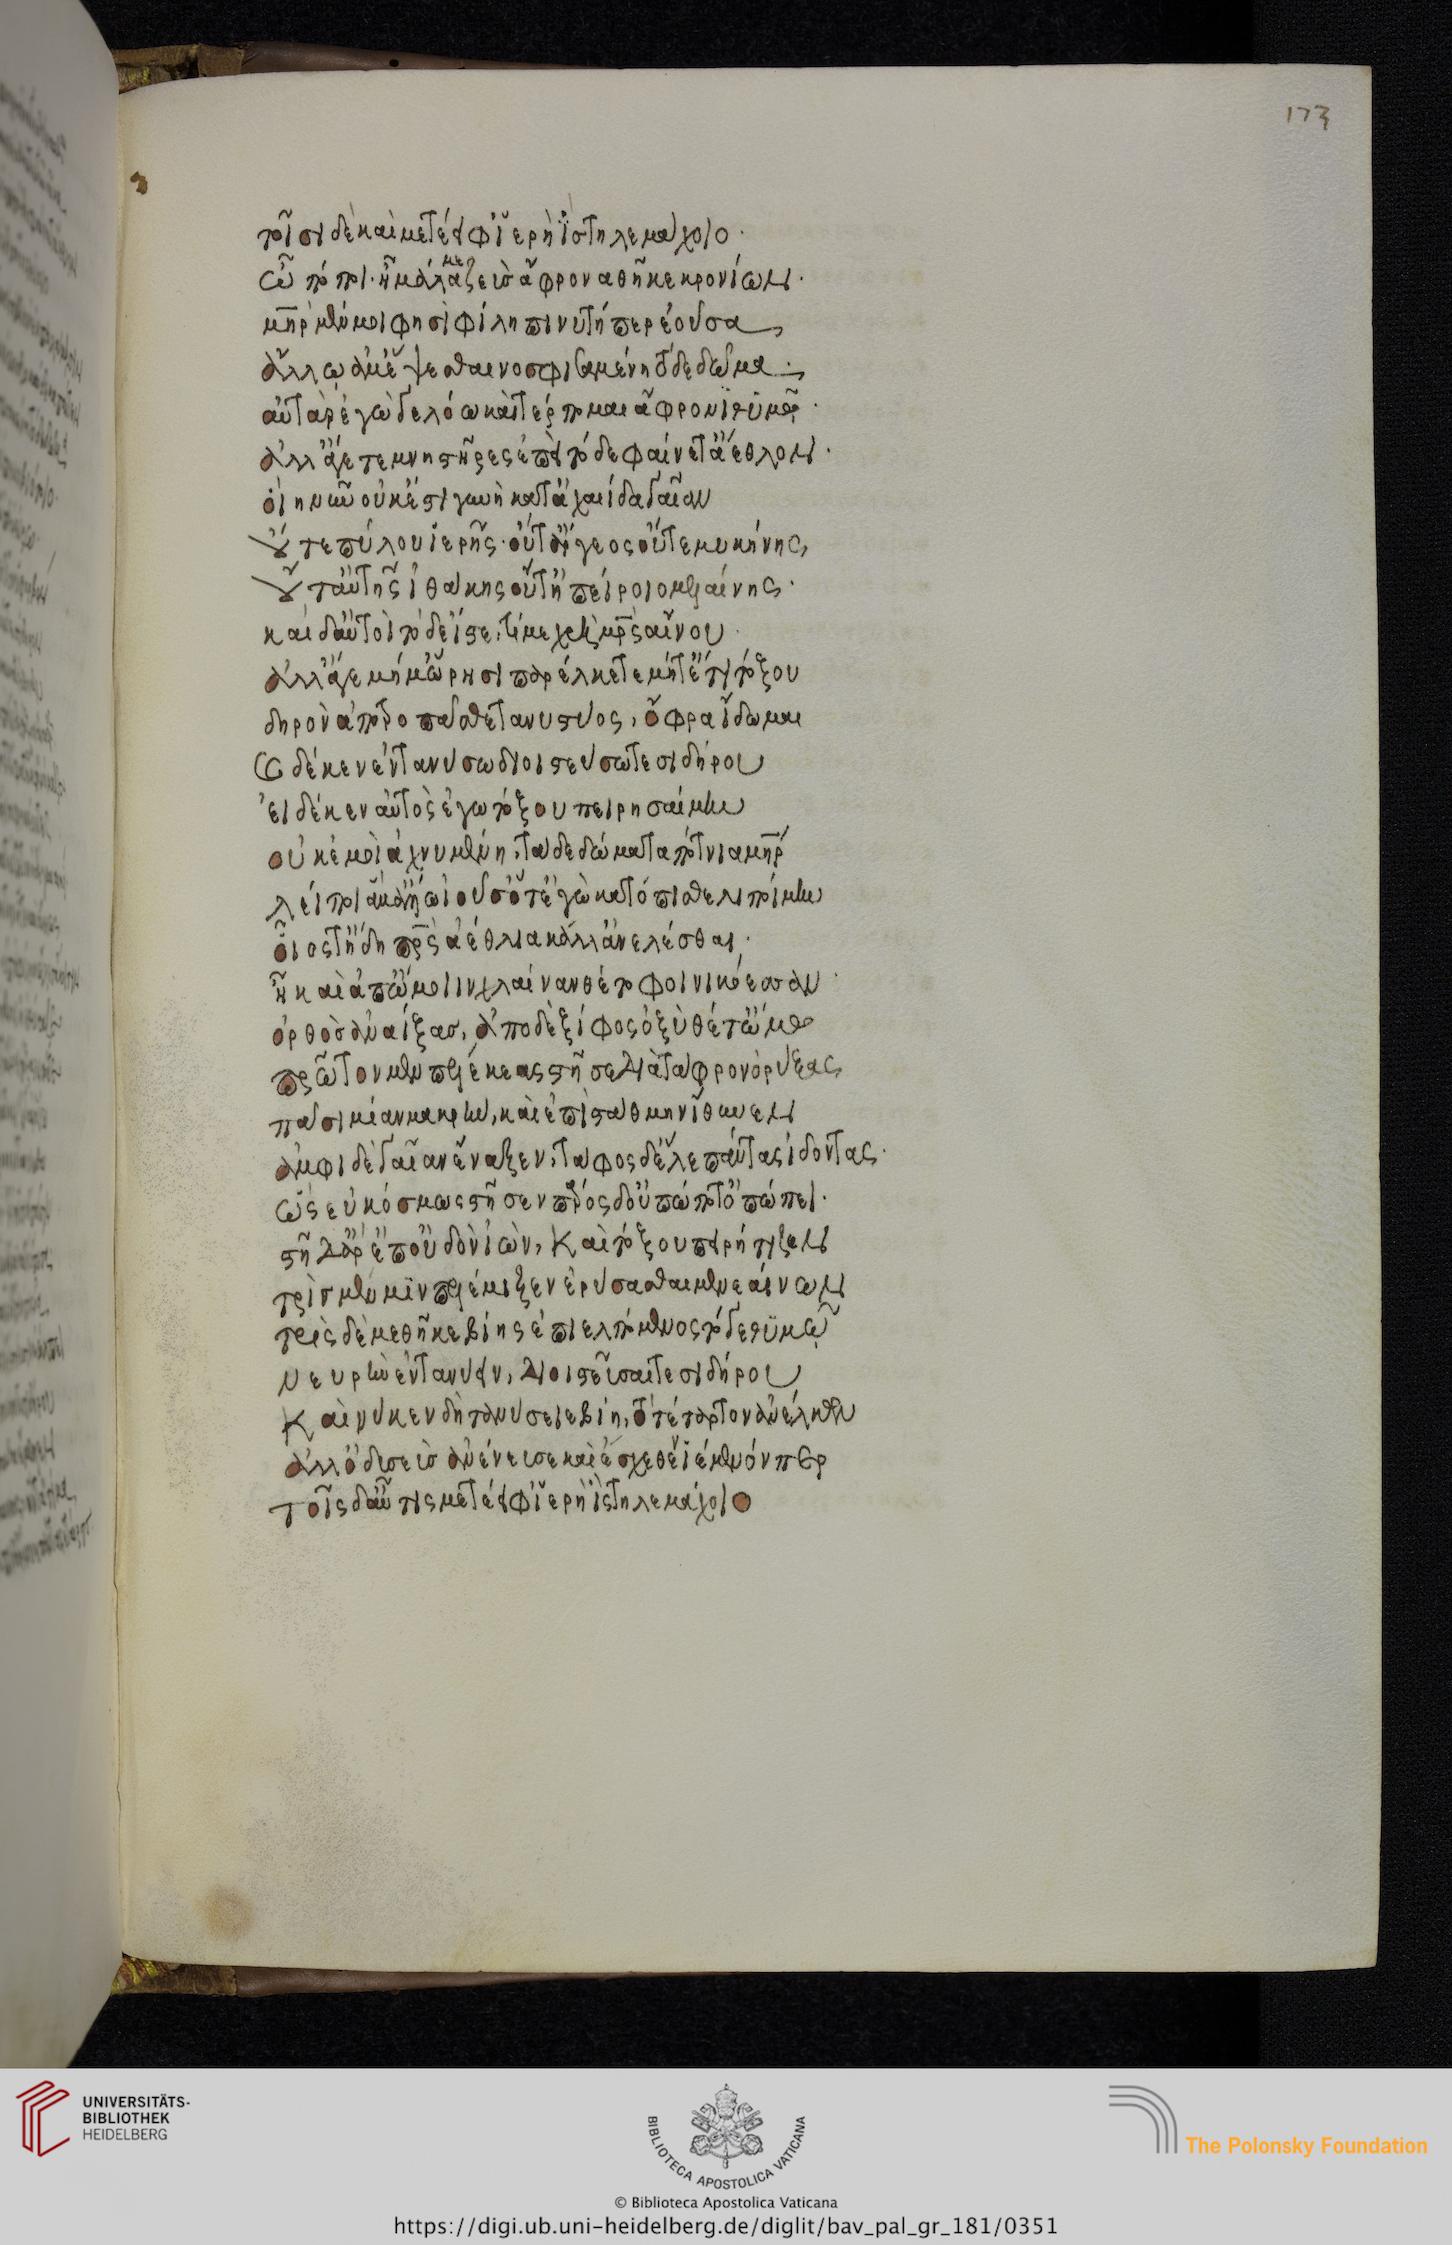 173
τοῖσι δὲ καὶ μετέειφ' ἱερὴ ἲς τηλεμάχοιο·
ὢ πόποι· ἦ μάλα με ζεὺς ἄφρονα θῆκε κρονίων·
μηρ μέν μοί φησὶ φίλη πινυτή περ ἐοῦσα,
ἄλλω ἅμ' ἕψεσθαι νοσφισαμένη τόδε δῶμα·
αὐτὰρ ἐγὼ γελόω καὶ τέρπομαι ἄφρονι θυμῶ·
ἀλλ' ἄγετε μνηστῆρες ἐπεὶ τόδε φαίνετ' ἄεθλον·
οἵη νῦν οὐκ ἔστι γυνὴ κατ' ἀχαιίδα γαῖαν
οὔτε πύλου ἱερῆς· οὔτ' ἄργεος οὔτε μυκήνης,
οὔτ' αὐτῆς ἰθάκης οὔτ' ἠπείροιο μελαίνης·
καὶ δ' αὐτοὶ τόδε ἴστε, τί με χρὴ μρς αἴνου·
ἀλλ' ἄγε μή μύνῃσι παρέλκετε μήτ' ἔτι τόξου
δηρὸν ἀποτρωπᾶσθε τανυστύος, ὄφρα ἴδωμαι
εἰ δέ κεν ἐντανύσω διοιστεύσω τε σιδήρου
εἰ δέ κεν αὐτὸς ἐγὼ τόξου πειρησαίμην
οὔ κέ μοι ἀχνυμένη, τάδε δώματα πότνια μηρ
λείποι ἅμ' ἄλλῳ ἰοῦσ' ὅτ' ἐγὼ κατόπισθε λιποίμην
οἷός τ' ἤδη πρς ἀέθλια κάλλ' ἀνελέσθαι·
ἦ καὶ ἀπ' ὤμοιιν χλαίναν θέτο φοινικόεσσαν·
ὀρθὸς ἀναίξας, ἀπὸ δὲ ξίφος ὀξὺ θέτ' ὤμων
πρῶτον μὲν πελέκεας στῆσε διὰ τάφρον ὀρύξας,
πᾶσι μίαν μακρὴν, καὶ ἐπὶ στάθμην ἴθυνεν
ἀμφὶ δὲ γαῖαν ἔναξεν, τάφος δ' ἕλε πάντας ἰδόντας·
ὡς εὐκόσμως στῆσεν πάρος δ' οὐπώποτ' ὀπώπει·
στῆ δ' ἄρ' ἐπ' οὐδὸν ἰὼν, καὶ τόξου πειρήτιζεν
τρὶς μέν μιν πελέμιξεν ἐρύσασθαι μενεαίνων
τρὶς δὲ μεθῆκε βίης ἐπιελπόμενος τόγε θυμῷ
νευρὴν ἐντανύειν, διοιστεύσειν τε σιδήρου
καί νύ κεν δὴ τάνυσειε βίη, τὸ τέταρτον ἀνέλκων
ἀλλ' ὀδυσεὺς ἀνένευσε καὶ ἔσχεθεν ἱέμενόν περ
τοῖς δ' αὖτις μετέειφ' ἱερὴ ἲς τηλεμάχοιο
UNIVERSITÄTS-
BIBLIOTHEK
HEIDELBERG
BIBLIOTECA APOSTOLICA VATICANA
© Biblioteca Apostolica Vaticana
The Polonsky Foundation
https://digi.ub.uni-heidelberg.de/diglit/bav_pal_gr_181/0351